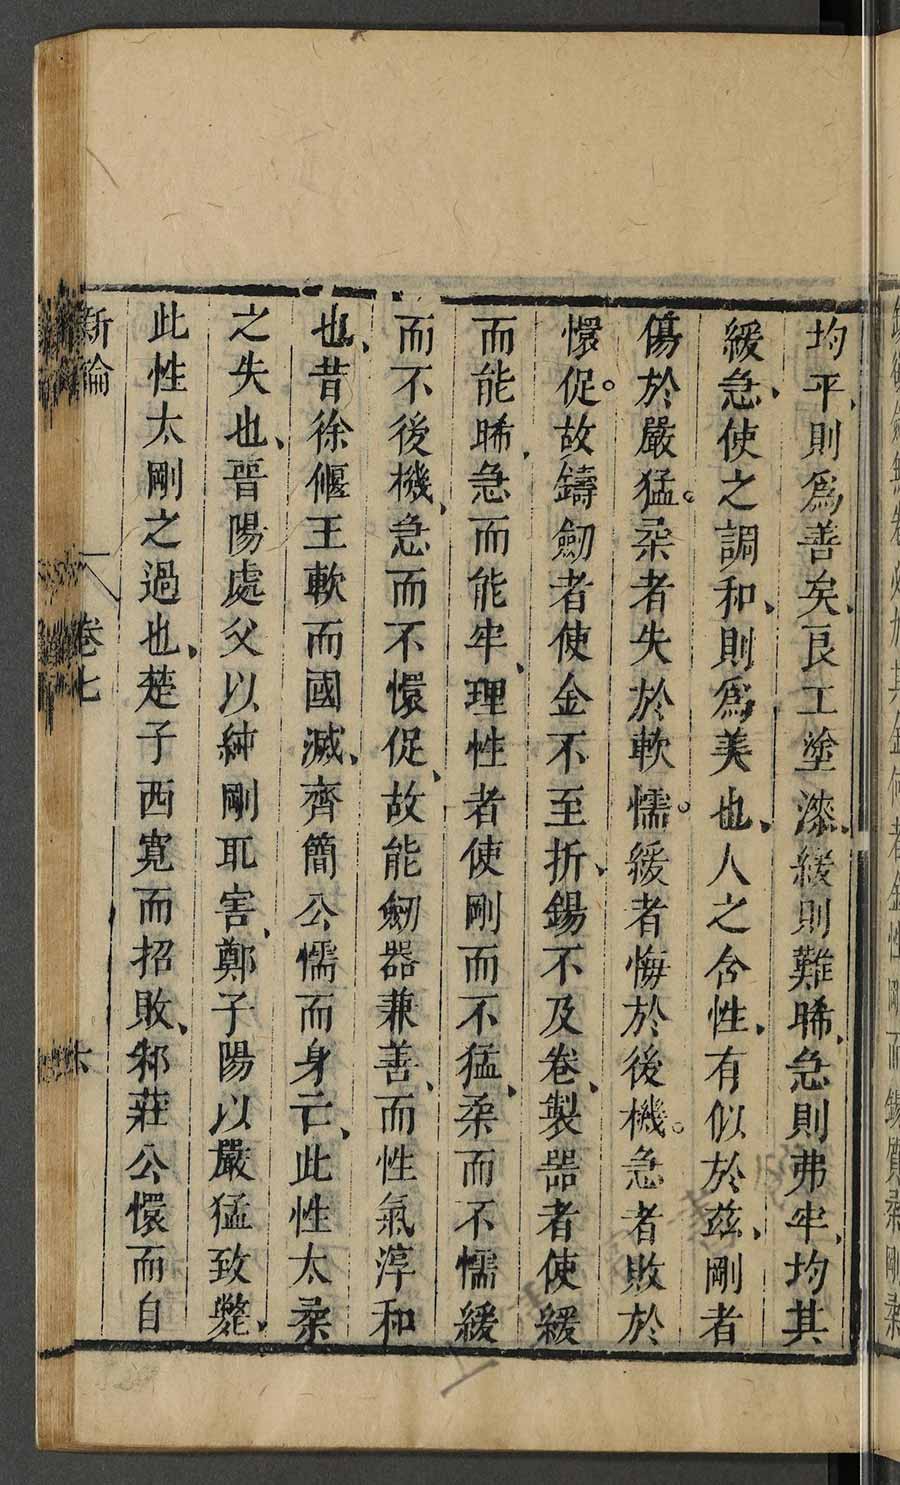 均平、則爲善矣、良工塗漆、緩則難晞、急則弗牢、均其
緩急、使之調和、則爲美也、人之含性、有似於茲、剛者
傷於嚴猛。柔者失於軟懦。緩者悔於後機。急者敗於
懁促。故鑄劒者使金不至折、錫不及卷、製器者使緩
而能晞、急而能牢、理性者使剛而不猛、柔而不懦緩
而不後機、急而不懁促、故能劒器兼善、而性氣淳和
也、昔徐偃王軟而國滅、齊簡公懦而身亡、此性太柔
之失也、晉陽處父以純剛耴害、鄭子陽以嚴猛致斃、
此性太剛之過也、楚子西寬而招敗、邾莊公懁而自
新論 卷七 六